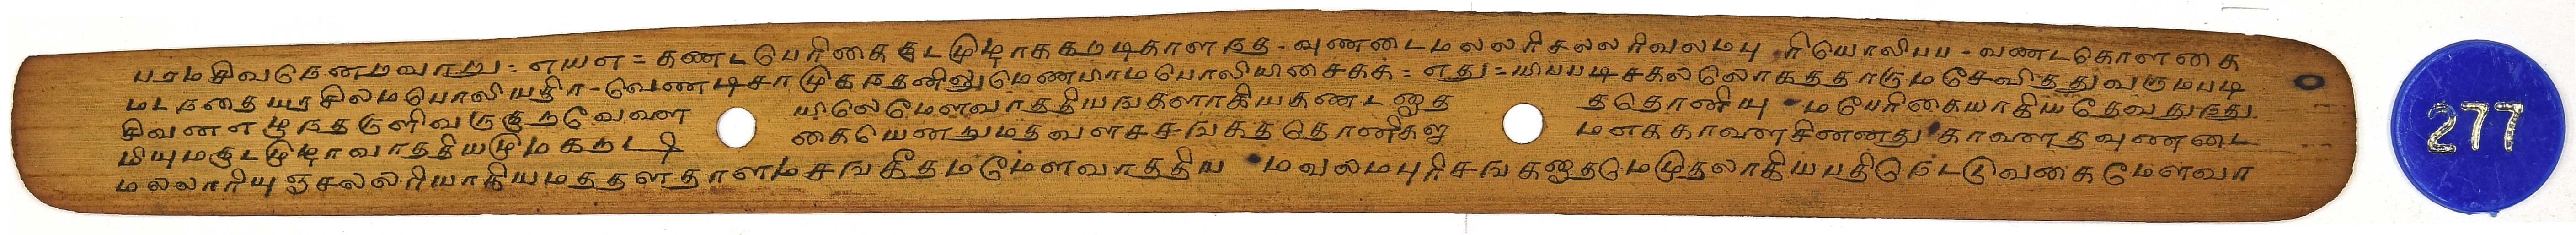 பரமசிவனெனறவாறு = எயஎ = கண்டபெரிகைகுடமுழாககரடிதாளநத - வுணடைமலலரிசலலரிவலமபு ரியொலிபப - வணடகொளகை
மடநதையரசிலமபொலியதிர - வெணடிசாமுகநதனிலுமெணடிசாமபொலியிசைகக = எது = யிபபடிசகலலொகததாருமசேவிததுவருமபடி
சிவனஎழுநதருளிவருகுறவேளை யிலெமேளவாததியஙகளாகியகணடனத ததொனியு மபேரிகையாகியதேவதுநது
மியுமகுடமுழாவாததியமுமகரடி கையெனறுமதவளசசஙகததொனிகளு மளககாளைசினனதது காளைதவுணடை
மலலாரியுஞசலலரியாகியமததளதாளமசஙகீதமமேளவாததிய மவலமபுரிசஙகனதமுமுதலாகியபதினெடடுவகைமேளவா
277